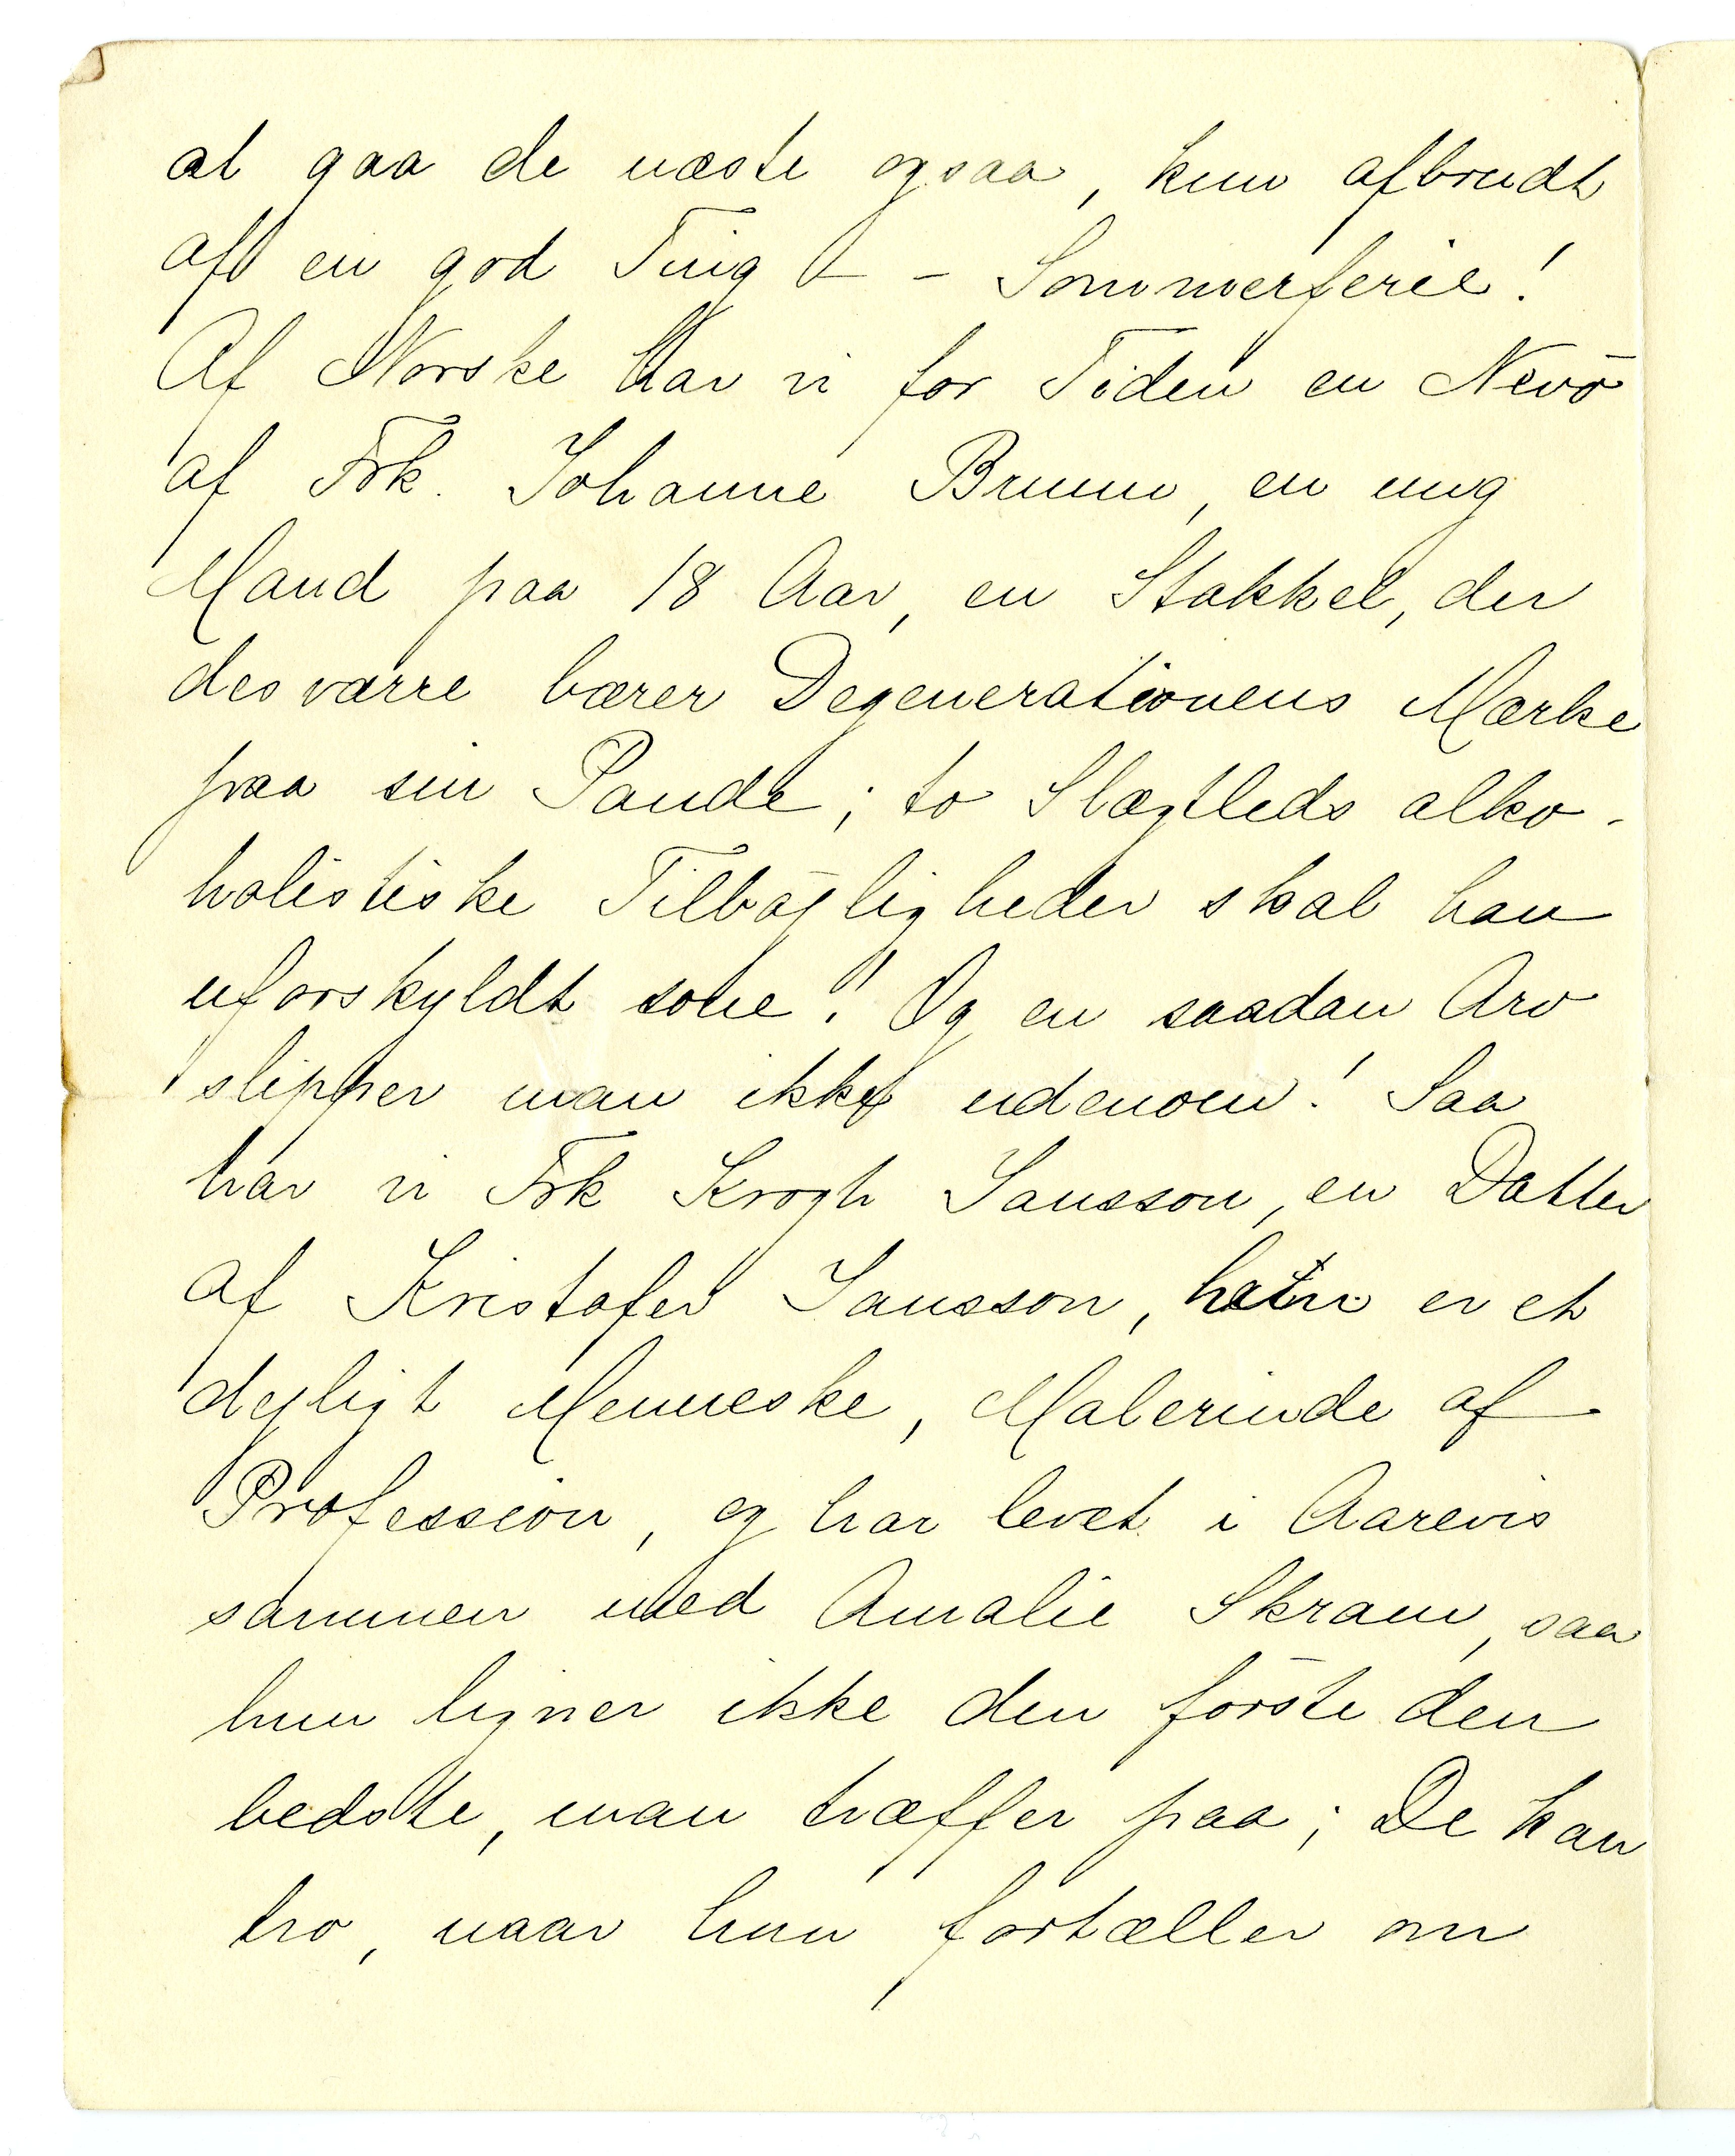 at gaa de næste ogsaa, kun afbrudt
af en god Ting – – Sommerferie!
Af Norske har vi for Tiden en Nevö
af Frk. Johanne Bruun, en ung
Mand paa 18 Aar, en Stakkel, der
desværre bærer Degenerationens Mærke
paa sin Pande; to Slægtleds alko-
holistiske Tilbøjligheder skal han
uforskyldt sone! Og en saadan Arv
slipper man ikke udenom! Saa
har vi Frk Krogh Jansson, en Datter
af Kristofer Jansson, hun er et
dejligt Menneske, Malerinde af
Profession, og har levet i Aarevis
sammen med Amalie Skram, saa
hun ligner ikke den förste den
bedste, man træffer paa; De kan
tro, naar hun fortæller om